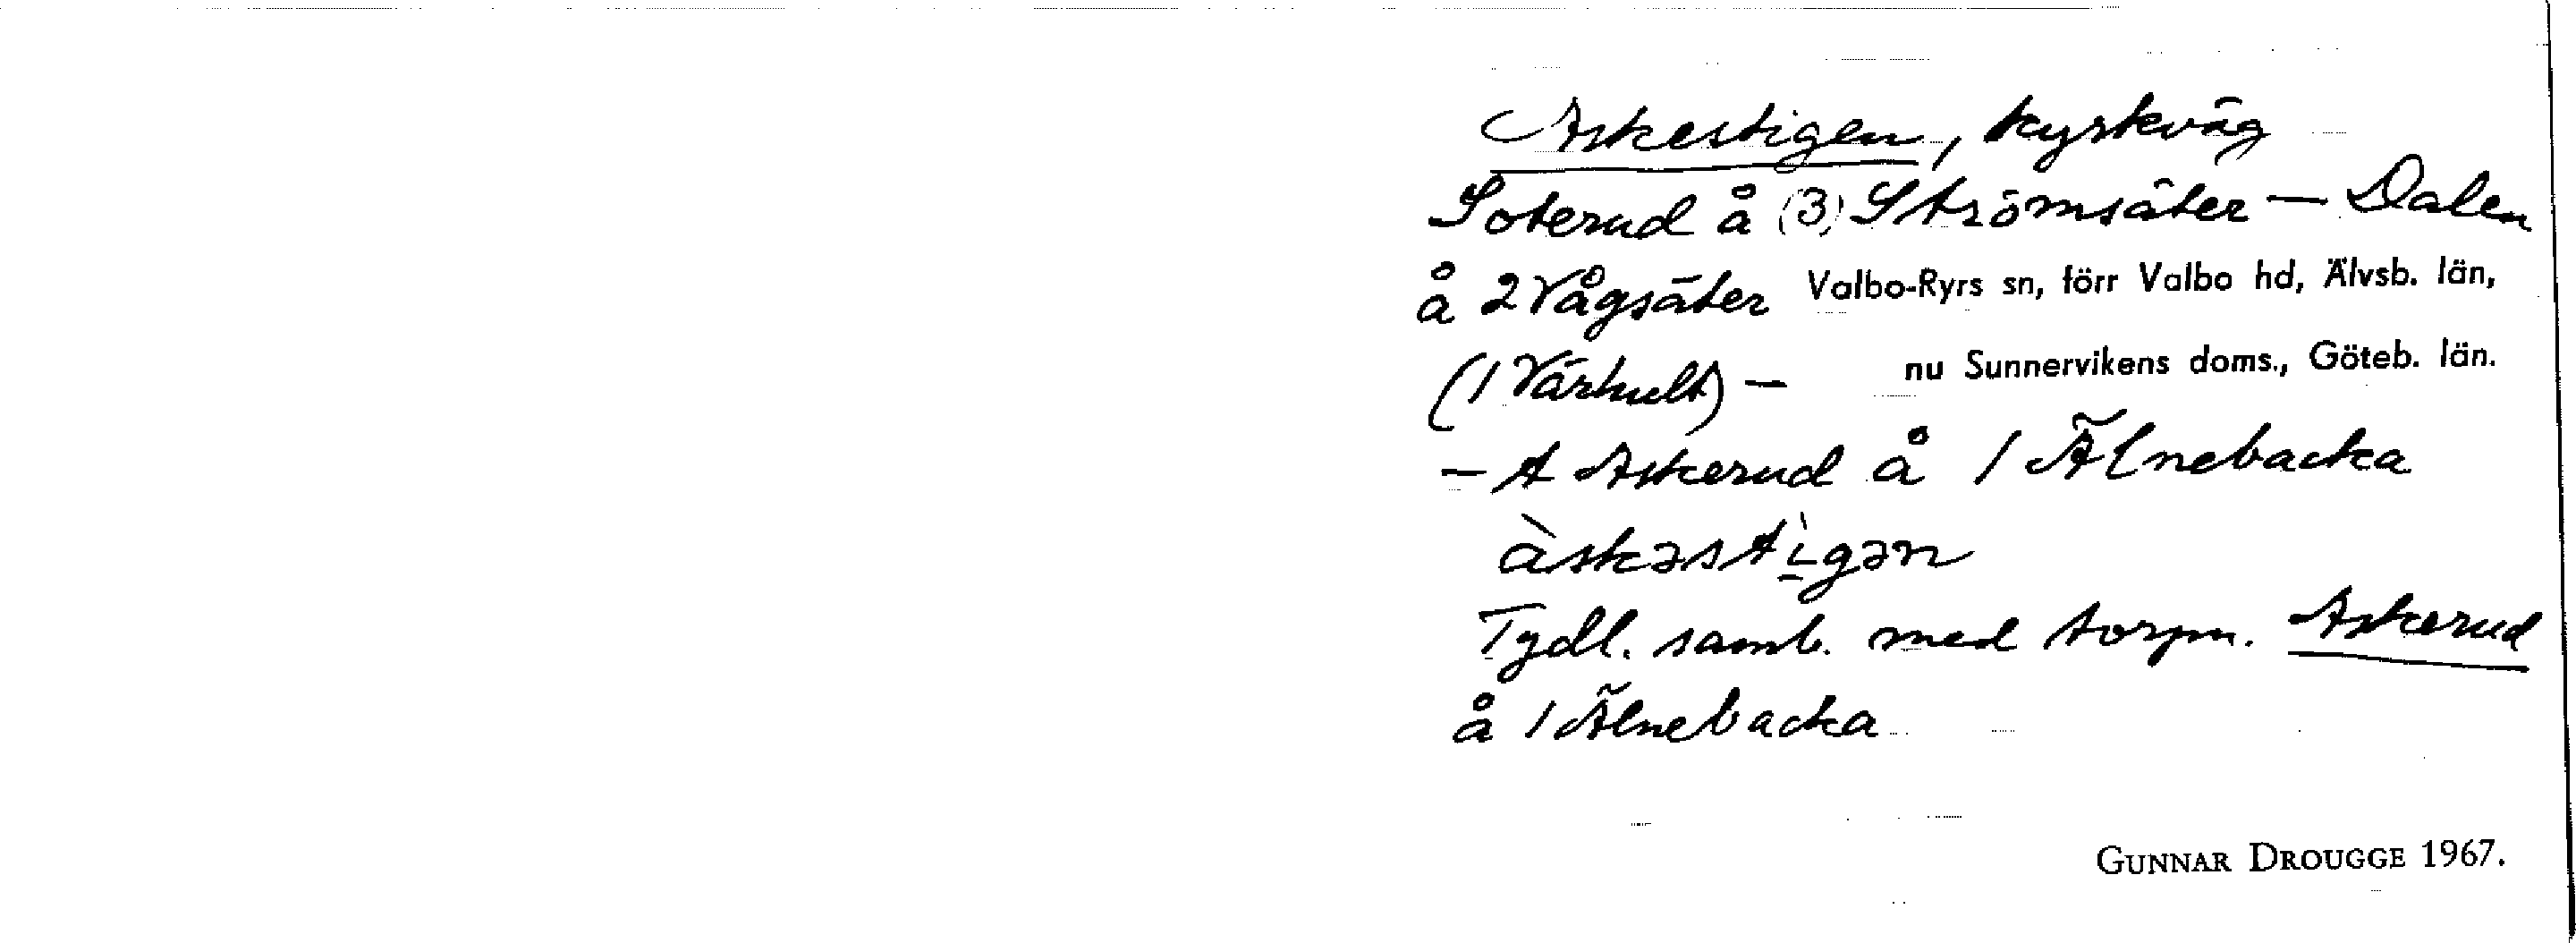 Askestigen, kyrkväg
Soterud å (3) Strömsäter — Dalen
å 2 Vågsäter Valbo-Ryrs sn, förr Valbo hd, Älvsb. län,
(1 Värhult) — nu Sunnervikens doms., Göteb. län.
— t Askerud å 1 Älnebacka
àskəstìgən
Tydl. samb. med torpn. Askerud
å 1 Älnebacka
GUNNAR DROUGGE 1967.